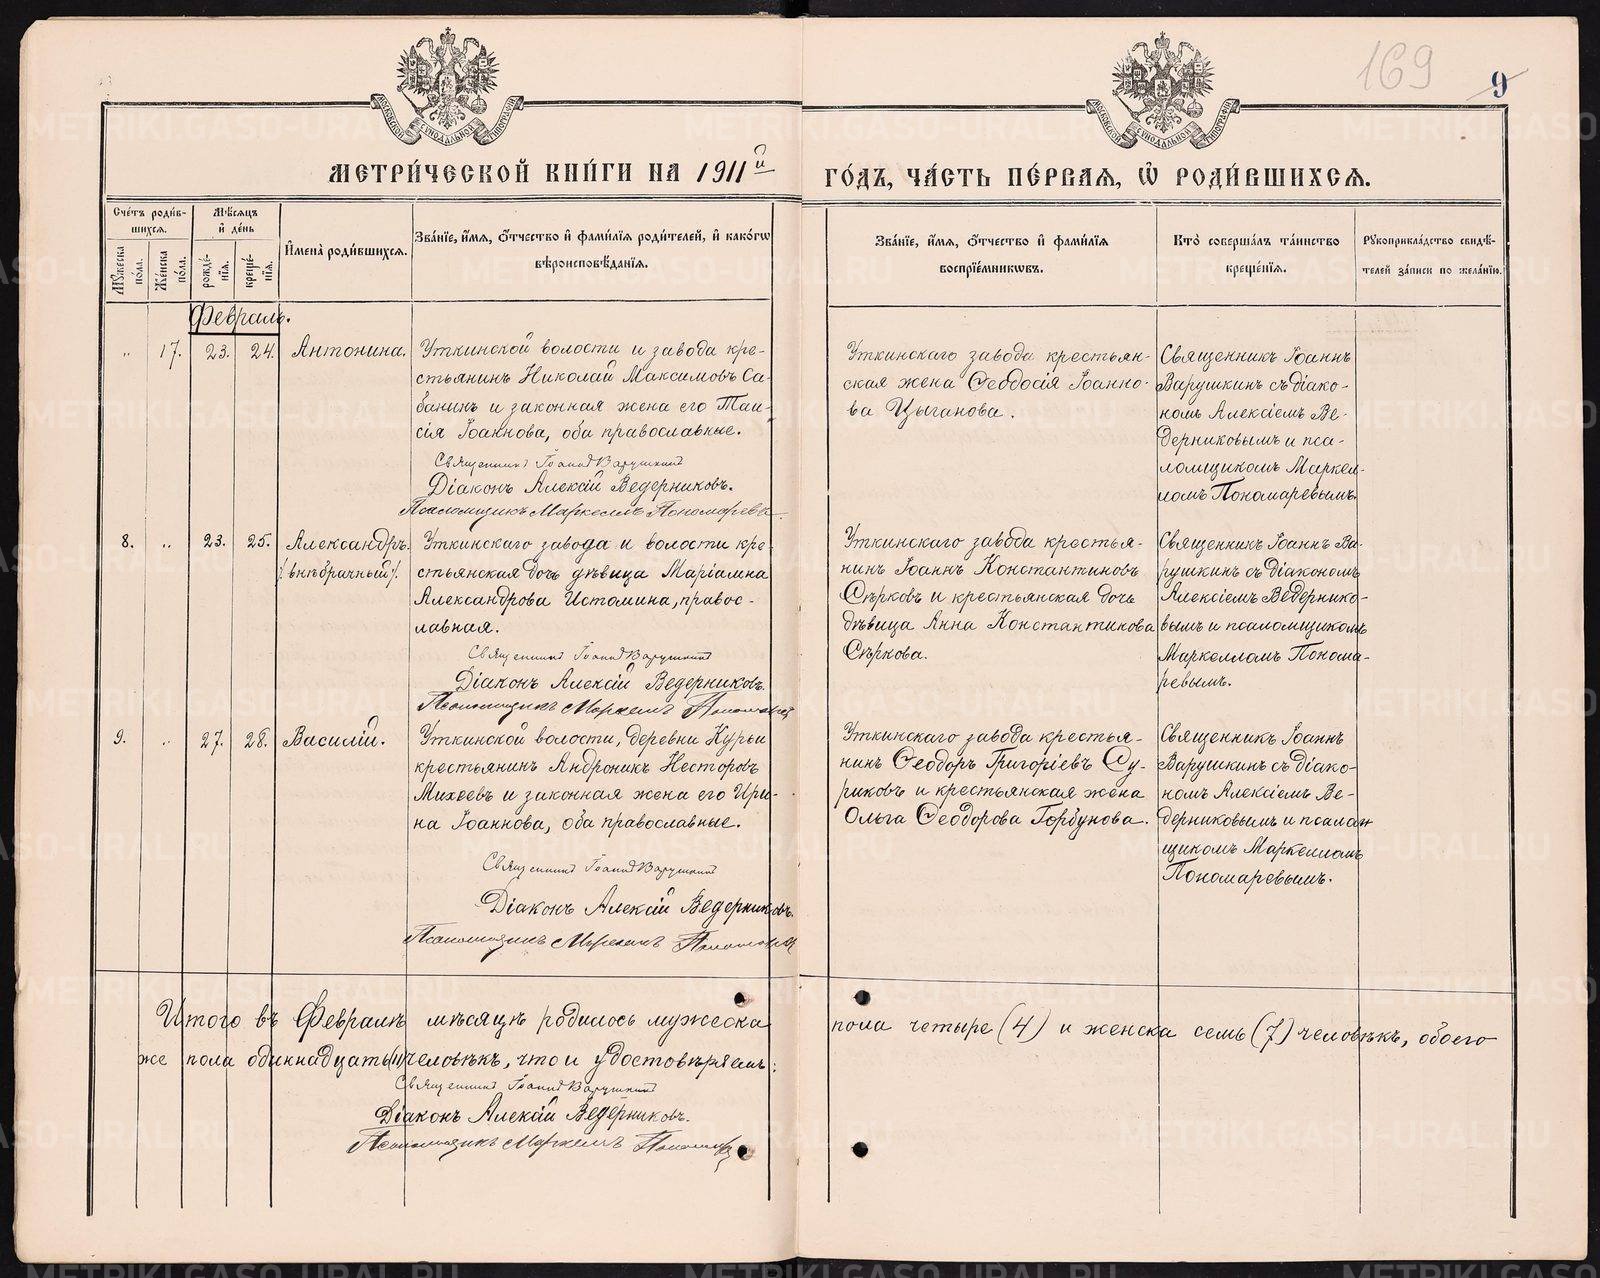 169
9
МОСКОВСКОЙ СѴНОДАЛЬНОЙ ТИПОГРАФІИ
МОСКОВСКОЙ СѴНОДАЛЬНОЙ ТИПОГРАФІИ
МЕТРИ́ЧЕСКОЙ КНИ́ГИ НА 1911й
ГО́ДЪ, ЧА́СТЬ ПЕ́РВАѦ, Ѡ РОДИ́ВШИХСѦ.
Сче́тъ роди́вшихсѧ.
Мꙋ́жеска по́ла.
Же́нска по́ла.
Мѣ́сѧцъ и҆ де́нь
рожде́нїѧ.
креще́нїѧ.
И҆мена̀ роди́вшихсѧ.
Зва́нїе, и҆́мѧ, ѻ҆́тчество и҆ фами́лїѧ роди́телей, и҆ како́гѡ
вѣроисповѣ́данїѧ.
Зва́нїе, и҆́мѧ, ѻ҆́тчество и҆ фами́лїѧ
воспрїе́мникѡвъ.
Кто̀ соверша́лъ та́инство
креще́нїѧ.
Рꙋкоприкла́дство свидѣ́-
телей за́писи по жела́нїю.
Февраль.
„ 17. 23. 24. Антонина.
Уткинской волости и завода кре-
стьянинъ Николай Максимовъ Са-
банинъ и законная жена его Таи-
сія Іоаннова, оба православные.
Священникъ Іоаннъ Варушкинъ
Діаконъ Алексій Ведерниковъ.
Псаломщикъ Маркеллъ Пономаревъ
Уткинскаго завода крестьян-
ская жена Ѳеодосія Іоанно-
ва Цыганова.
Священникъ Іоаннъ
Варушкинъ съ діако-
номъ Алексіемъ Ве-
дерниковымъ и пса-
ломщикомъ Маркел-
ломъ Пономаревымъ.
8. „ 23. 25. Александръ.
/внѣбрачный/.
Уткинскаго завода и волости кре-
стьянская дочь дѣвица Маріамна
Александрова Истомина, правос-
лавная.
Священникъ Іоаннъ Варушкинъ
Діаконъ Алексій Ведерниковъ.
Псаломщикъ Маркеллъ Пономаревъ
Уткинскаго завода крестья-
нинъ Іоаннъ Константиновъ
Сѣрковъ и крестьянская дочь
дѣвица Анна Константинова
Сѣркова.
Священникъ Іоаннъ Ва-
рушкинъ съ діакономъ
Алексіемъ Ведернико-
вымъ и псаломщикомъ
Маркелломъ Понома-
ревымъ.
9. „ 27. 28. Василій.
Уткинской волости, деревни Курьи
крестьянинъ Андроникъ Несторовъ
Михеевъ и законная жена его Ири-
на Іоаннова, оба православные.
Священникъ Іоаннъ Варушкинъ
Діаконъ Алексій Ведерниковъ.
Псаломщикъ Маркеллъ Пономаревъ
Уткинскаго завода крестья-
нинъ Ѳеодоръ Григоріевъ Су-
риковъ и крестьянская жена
Ольга Ѳеодорова Горбунова.
Священникъ Іоаннъ
Варушкинъ съ діако-
номъ Алексіемъ Ве-
дерниковымъ и псалом
щикомъ Маркелломъ
Пономаревымъ.
Итого въ Февралѣ мѣсяцѣ родилось мужеска
пола четыре (4) и женска семь (7) человѣкъ, обоего
же пола одиннадцать (11) человѣкъ, что и удостовѣряемъ:
Священникъ Іоаннъ Варушкинъ
Діаконъ Алексій Ведерниковъ.
Псаломщикъ Маркеллъ Пономаревъ
METRIKI.GASO-URAL.RU